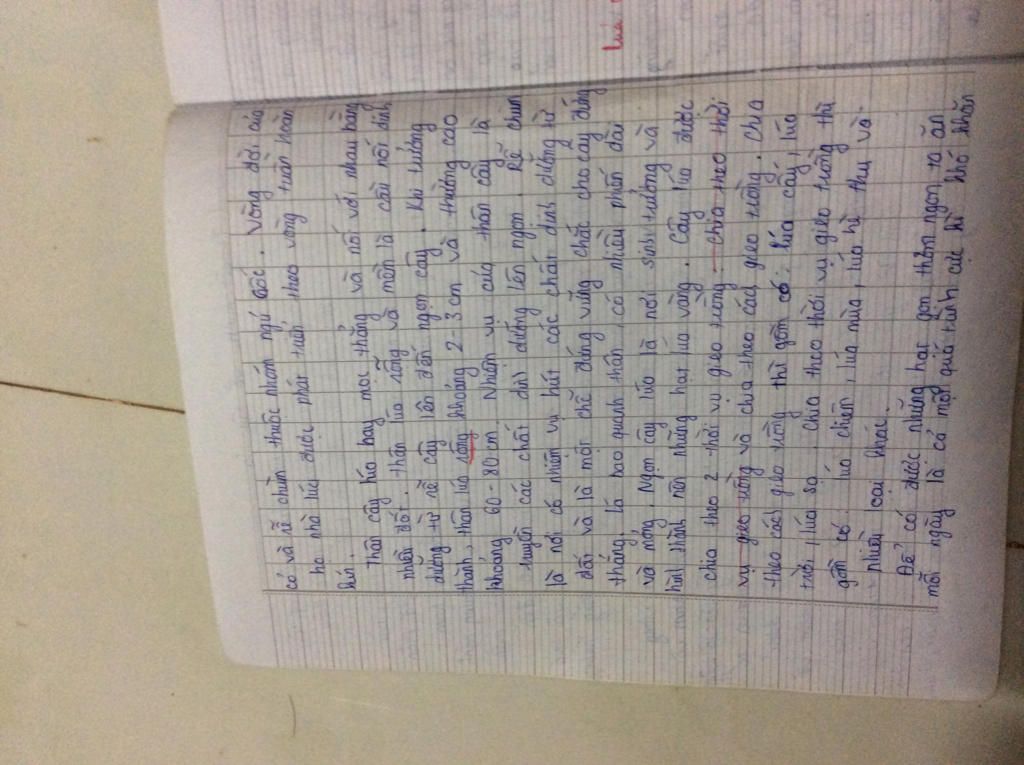 cỏ và rễ chùm thuộc nhóm ngũ cốc. Vòng đời của
họ nhà lúa được phát triển theo vòng tuần hoàn
kín.
Thân cây lúa hay mọc thẳng và nối với nhau bằng
nhiều đốt. thân lúa rỗng và mềm là cầu nối dinh
dưỡng từ rễ cây lên đến ngọn cây. Khi trưởng
thành, thân lúa rộng khoảng 2-3cm và thường cao
khoảng 60-80cm. Nhiệm vụ của thân cây là
truyền các chất dinh dưỡng lên ngọn. Rễ chùm
là nơi có nhiệm vụ hút các chất dinh dưỡng từ
đất và là một chỗ đứng vững chắc cho cây đứng
thẳng, lá bao quanh thân, có nhiều phiến dài
và mỏng. Ngọn cây lúa là nơi sinh trưởng và
hình thành nên những hạt lúa vàng. Cây lúa được
chia theo 2 thời vụ gieo trồng. chia theo thời
vụ gieo trồng và chia theo cách gieo trồng. Chia
theo cách gieo trồng thì gồm có: lúa cấy, lúa
trời, lúa sạ. Chia theo thời vụ gieo trồng thì
gồm có: lúa chiêm, lúa mùa, lúa hè thu và
nhiều loại khác.
Để có được những hạt gạo thơm ngon ta ăn
mỗi ngày là cả một quá trình cực kì khó khăn
lúa